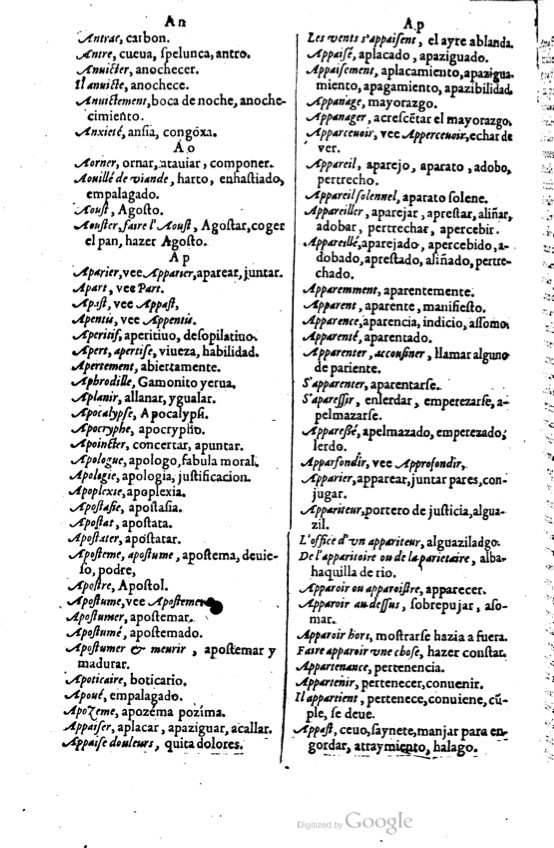 An
Antrac, carbon.
Antre, cueua, ſpelunca, antro.
Anuicter, anochecer.
Il anuicte, anochece.
Anuictement, boca de noche, anoche-
cimiento.
Anxieté, anſia, congóxa.
Ao
Aorner, ornar, atauiar, componer.
Aouillé de viande, harto, enhaſtiado,
empalagado.
Aouſt, Agoſto.
Aouſter, faire l'Aouſt, Agoſtar, coger
el pan, hazer Agoſto.
Ap
Aparier, vee Apparier, aparear, juntar.
Apart, vee Part.
Apaſt, vee Appaſt,
Apentis, vee Appentis.
Aperitif, aperitiuo, deſopilatiuo.
Apert, apertiſe, viueza, habilidad.
Apertement, abiertamente.
Aphrodille, Gamonito yerua.
Aplanir, allanar, ygualar.
Apocalypſe, Apocalypſi.
Apocryphe, apocrypho.
Apoincter, concertar, apuntar.
Apologue, apologo, fabula moral.
Apologie, apologia, juſtificacion.
Apoplexie, apoplexia.
Apoſtaſie, apoſtaſia.
Apoſtat, apoſtata.
Apoſtater, apoſtatar.
Apoſteme, apoſtume, apoſtema, deuie-
ſo, podre,
Apoſtre, Apoſtol.
Apoſtume, vee Apoſteme
Apoſtumer, apoſtemar.
Apoſtumé, apoſtemado.
Apoſtumer & meurir, apoſtemar y
madurar.
Apoticaire, boticario.
Apoué, empalagado.
Apozeme, apozéma pozíma.
Appaiſer, aplacar, apaziguar, acallar.
Appaiſe douleurs, quita dolores.
Ap
Les vents s'appaiſent, el ayre ablanda.
Appaiſé, aplacado, apaziguado.
Appaiſement, aplacamiento, apazigua-
miento, apagamiento, apazibilidad.
Appanage, mayorazgo.
Appanager, acreſcētar el mayorazgo.
Apparceuoir, vee Apperceuoir, echar de
ver.
Appareil, aparejo, aparato, adobo,
pertrecho.
Appareil ſolennel, aparato ſolene.
Appareiller, aparejar, apreſtar, aliñar,
adobar, pertrechar, apercebir.
Appareillé, aparejado, apercebido, a-
dobado, apreſtado, aliñado, pertre-
chado.
Apparemment, aparentemente.
Apparent, aparente, manifieſto.
Apparence, aparencia, indicio, aſſomo.
Apparenté, aparentado.
Apparenter, acouſiner, llamar alguno
de pariente.
S'apparenter, aparentarſe.
S'apareſſir, enlerdar, emperezarſe, a-
pelmazarſe.
Appareßé, apelmazado, emperezado;
lerdo.
Apparfondir, vee Approfondir,
Apparier, aparear, juntar pares, con-
jugar.
Appariteur, portero de juſticia, algua-
zil.
L'office d'vn appariteur, alguaziladgo.
De l'apparitoire ou de la parietaire, alba-
haquilla de rio.
Apparoir ou apparoiſtre, apparecer.
Apparoir au deſſus, ſobrepujar, aſo-
mar.
Apparoir hors, moſtrarſe hazia a fuera.
Faire apparoir vne choſe, hazer conſtar.
Appartenance, pertenencia.
Appartenir, pertenecer, conuenir.
Il appartient, pertenece, conuiene, cũ-
ple, ſe deue.
Appaſt, ceuo, ſaynete, manjar para en-
gordar, atraymiento, halago.
Digitized by Google